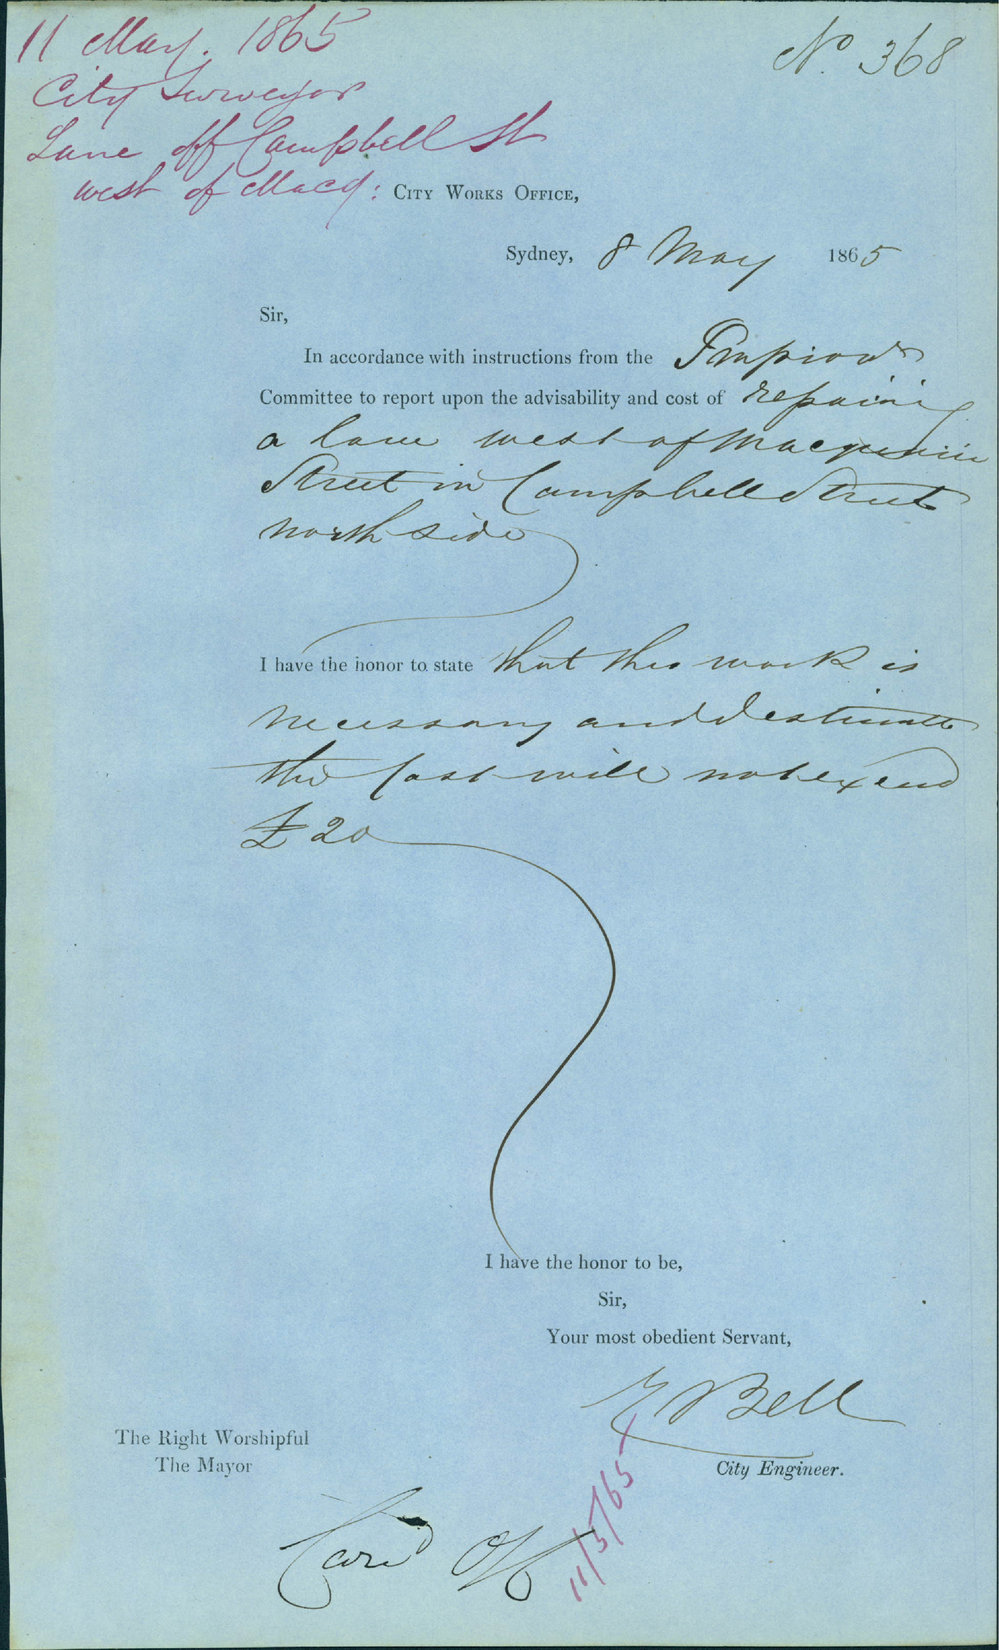 11 May. 1865
No. 368
City Surveyor
Lane off Campbell St
west of Macq:
City Works Office,
Sydney, 8 May 1865
Sir,
In accordance with instructions from the
Committee to report upon the advisability and cost of repairing
a lane west of Macquarie
Street in Campbell Street
north side
I have the honor to state that this work is
necessary and I estimate
the cost will not exceed
£20
I have the honor to be,
Sir,
Your most obedient Servant,
E Bell
City Engineer.
The Right Worshipful
The Mayor
11/5/65